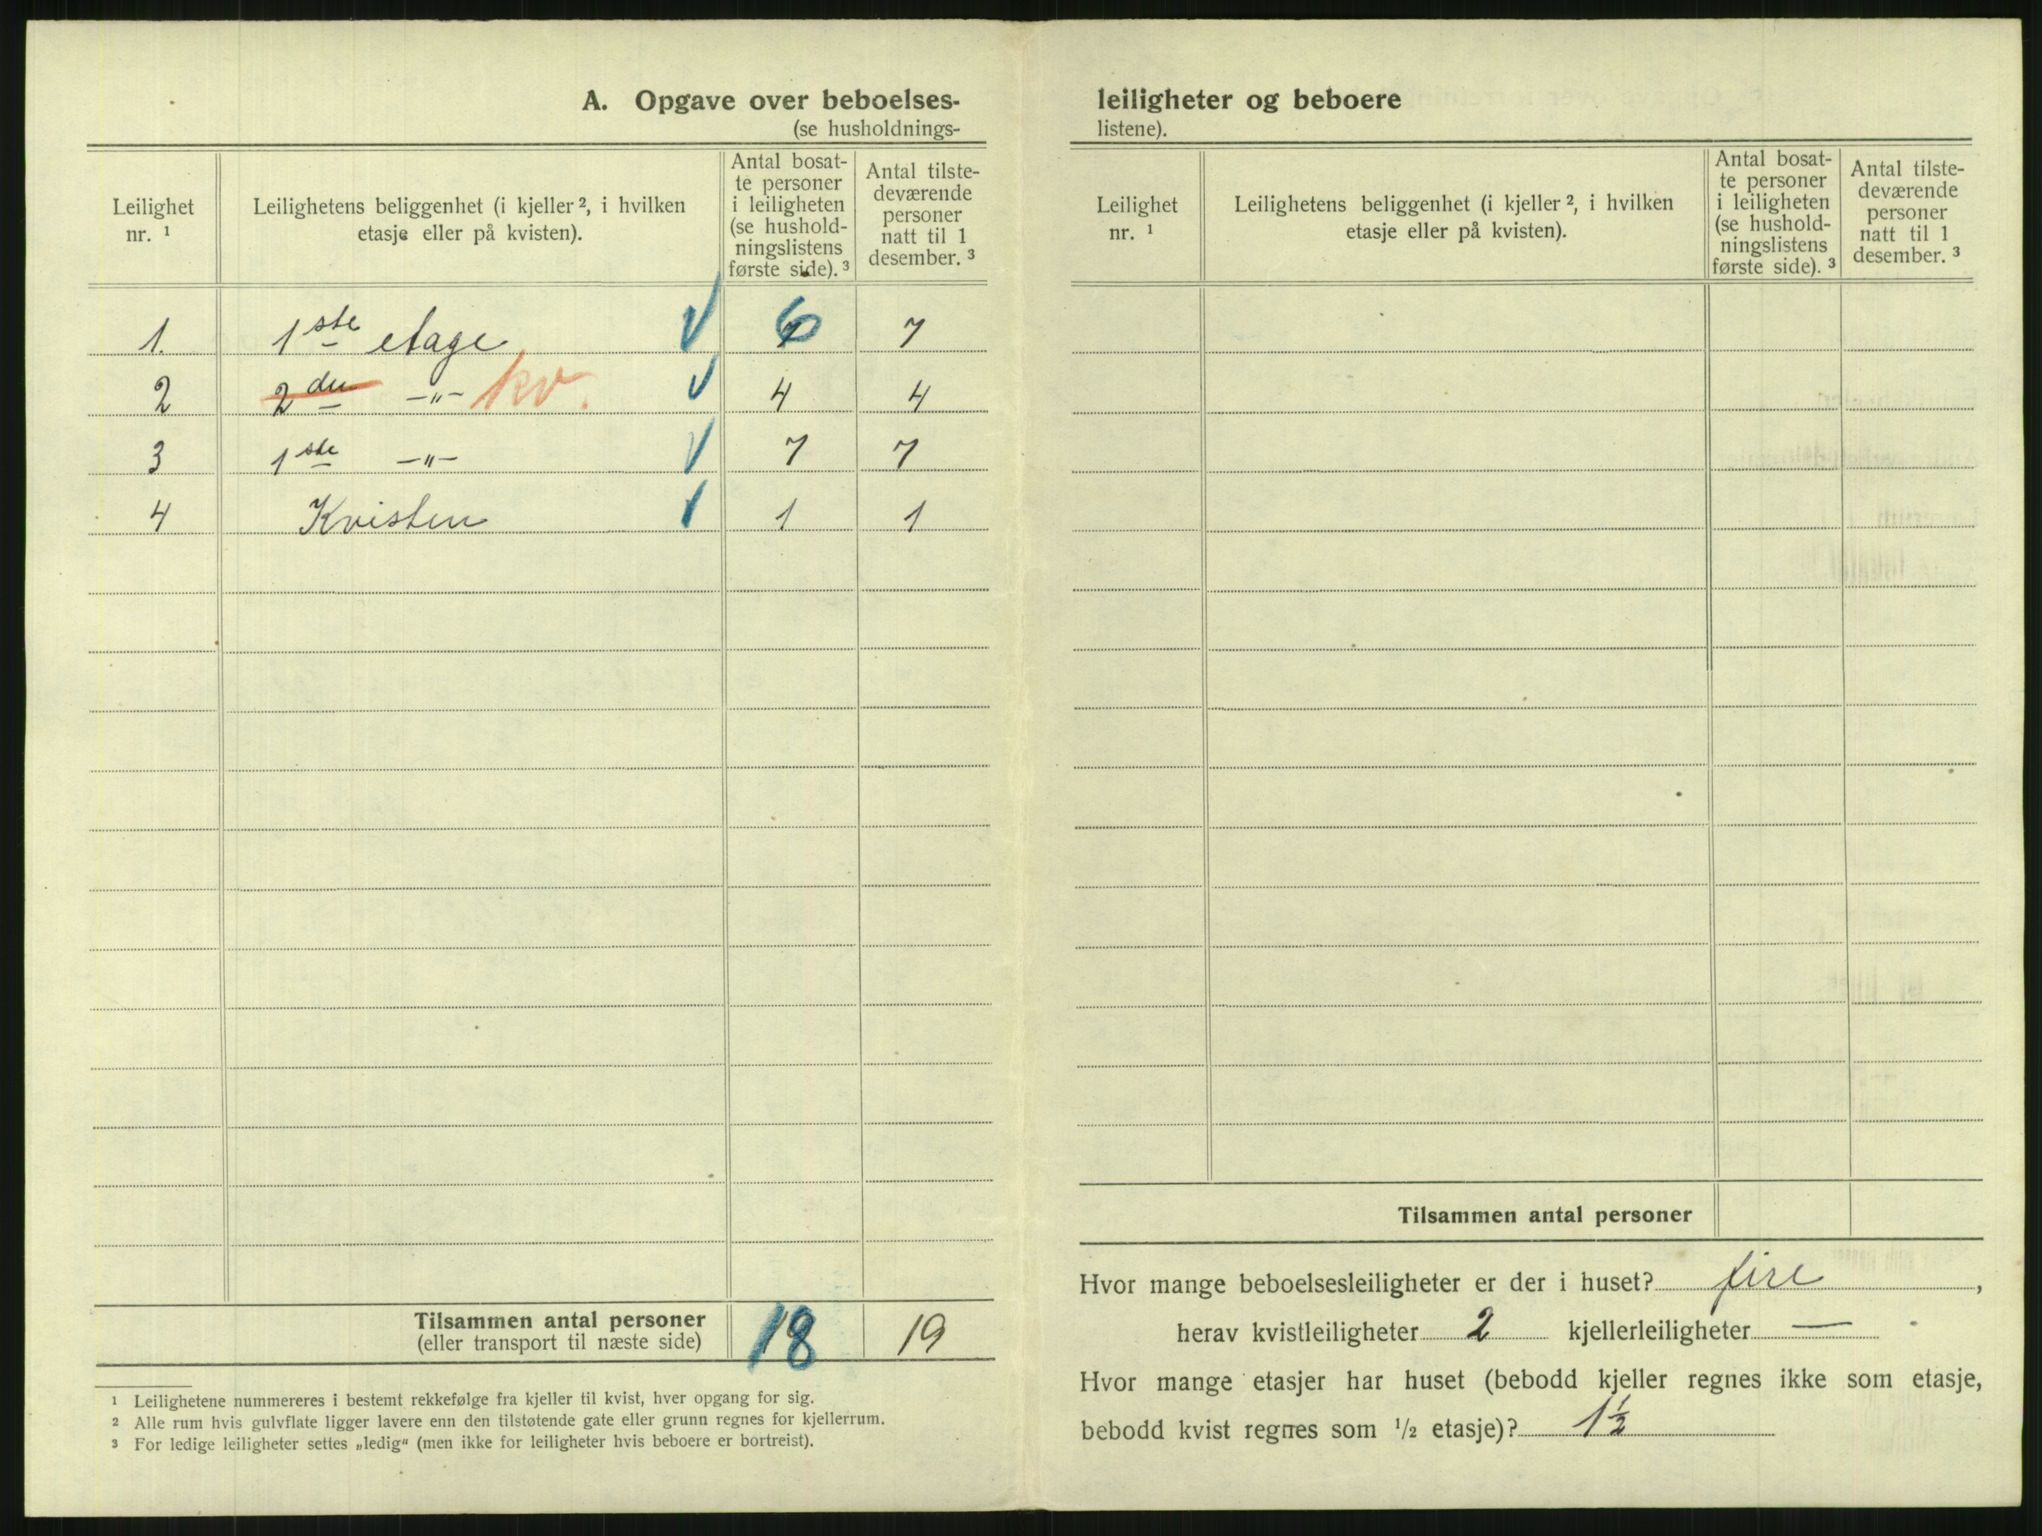 A. Opgave over beboelses-
(se husholdnings-
Leilighet nr. ¹
Leilighetens beliggenhet (i kjeller ², i hvilken etasje eller på kvisten).
Antal bosat-
te personer
i leiligheten
(se hushold-
ningslistens
første side). ³
Antal tilste-
deværende
personer
natt til 1
desember. ³
1. 1ste etage 6 7
2 2den -„- kv. 4 4
3 1ste -„- 7 7
4 Kvisten 1 1
Tilsammen antal personer 18 19
(eller transport til næste side)
¹ Leilighetene nummereres i bestemt rekkefølge fra kjeller til kvist, hver opgang for sig.
² Alle rum hvis gulvflate ligger lavere enn den tilstøtende gate eller grunn regnes for kjellerrum.
³ For ledige leiligheter settes „ledig“ (men ikke for leiligheter hvis beboere er bortreist).
leiligheter og beboere
listene).
Leilighet nr. ¹
Leilighetens beliggenhet (i kjeller ², i hvilken etasje eller på kvisten).
Antal bosat-
te personer
i leiligheten
(se hushold-
ningslistens
første side). ³
Antal tilste-
deværende
personer
natt til 1
desember. ³
Tilsammen antal personer
Hvor mange beboelsesleiligheter er der i huset? fire,
herav kvistleiligheter 2 kjellerleiligheter — .
Hvor mange etasjer har huset (bebodd kjeller regnes ikke som etasje,
bebodd kvist regnes som ½ etasje)? 1½